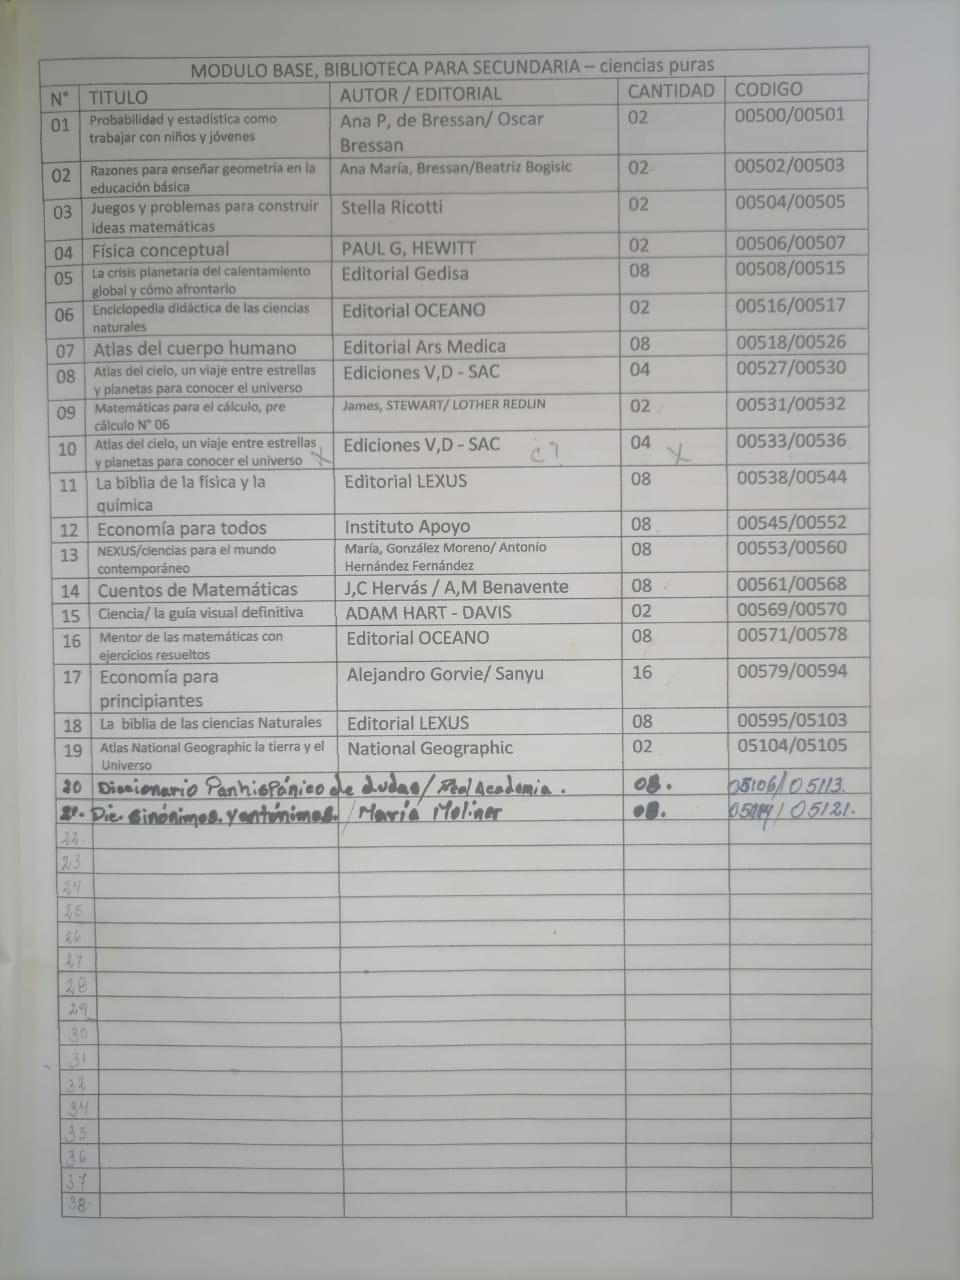 MODULO BASE, BIBLIOTECA PARA SECUNDARIA – ciencias puras
N° TITULO AUTOR / EDITORIAL CANTIDAD CODIGO
01 Probabilidad y estadística como trabajar con niños y jóvenes Ana P, de Bressan/ Oscar Bressan 02 00500/00501
02 Razones para enseñar geometría en la educación básica Ana María, Bressan/Beatriz Bogisic 02 00502/00503
03 Juegos y problemas para construir ideas matemáticas Stella Ricotti 02 00504/00505
04 Física conceptual PAUL G, HEWITT 02 00506/00507
05 La crisis planetaria del calentamiento global y cómo afrontarlo Editorial Gedisa 08 00508/00515
06 Enciclopedia didáctica de las ciencias naturales Editorial OCEANO 02 00516/00517
07 Atlas del cuerpo humano Editorial Ars Medica 08 00518/00526
08 Atlas del cielo, un viaje entre estrellas y planetas para conocer el universo Ediciones V,D - SAC 04 00527/00530
09 Matemáticas para el cálculo, pre cálculo N° 06 James, STEWART/ LOTHER REDLIN 02 00531/00532
10 Atlas del cielo, un viaje entre estrellas y planetas para conocer el universo X Ediciones V,D - SAC ¿? 04 X 00533/00536
11 La biblia de la física y la química Editorial LEXUS 08 00538/00544
12 Economía para todos Instituto Apoyo 08 00545/00552
13 NEXUS/ciencias para el mundo contemporáneo María, González Moreno/ Antonio Hernández Fernández 08 00553/00560
14 Cuentos de Matemáticas J,C Hervás / A,M Benavente 08 00561/00568
15 Ciencia/ la guía visual definitiva ADAM HART - DAVIS 02 00569/00570
16 Mentor de las matemáticas con ejercicios resueltos Editorial OCEANO 08 00571/00578
17 Economía para principiantes Alejandro Gorvie/ Sanyu 16 00579/00594
18 La biblia de las ciencias Naturales Editorial LEXUS 08 00595/05103
19 Atlas National Geographic la tierra y el Universo National Geographic 02 05104/05105
20 Diccionario Panhispánico de dudas/ Real Academia. 08. 05106/05113.
21. Dic. Sinónimos. y antónimos. / María Moliner 08. 05114/05121.
22.
23
24
25
26
27
28
29
30
31
32
34
35
36
37
38.